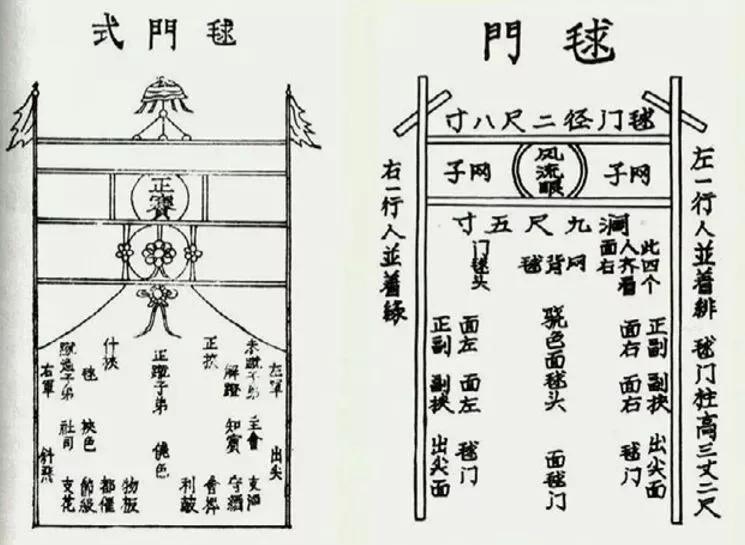 毬門
毬门径二尺八寸
网子
风流眼
网子
濶九尺五寸
左一行人並着緋
毬门柱高三丈二尺
此四个
人齐看
面右
网背毬
门毬头
正副 副挟 出尖面
面右 面右 毬门
骁色面毬头 面毬门
面左 面左 毬门
正副 副挟 出尖面
右一行人並着緑
毬門式
正
左軍 出尖
未蹴子弟 主會 支酒
解蹬 知賓 守酒
正挾 會幹
利鼓
正蹴子弟 色
什挾 物板
都催
毬 挾色 節級
子弟 社司 支花
右軍